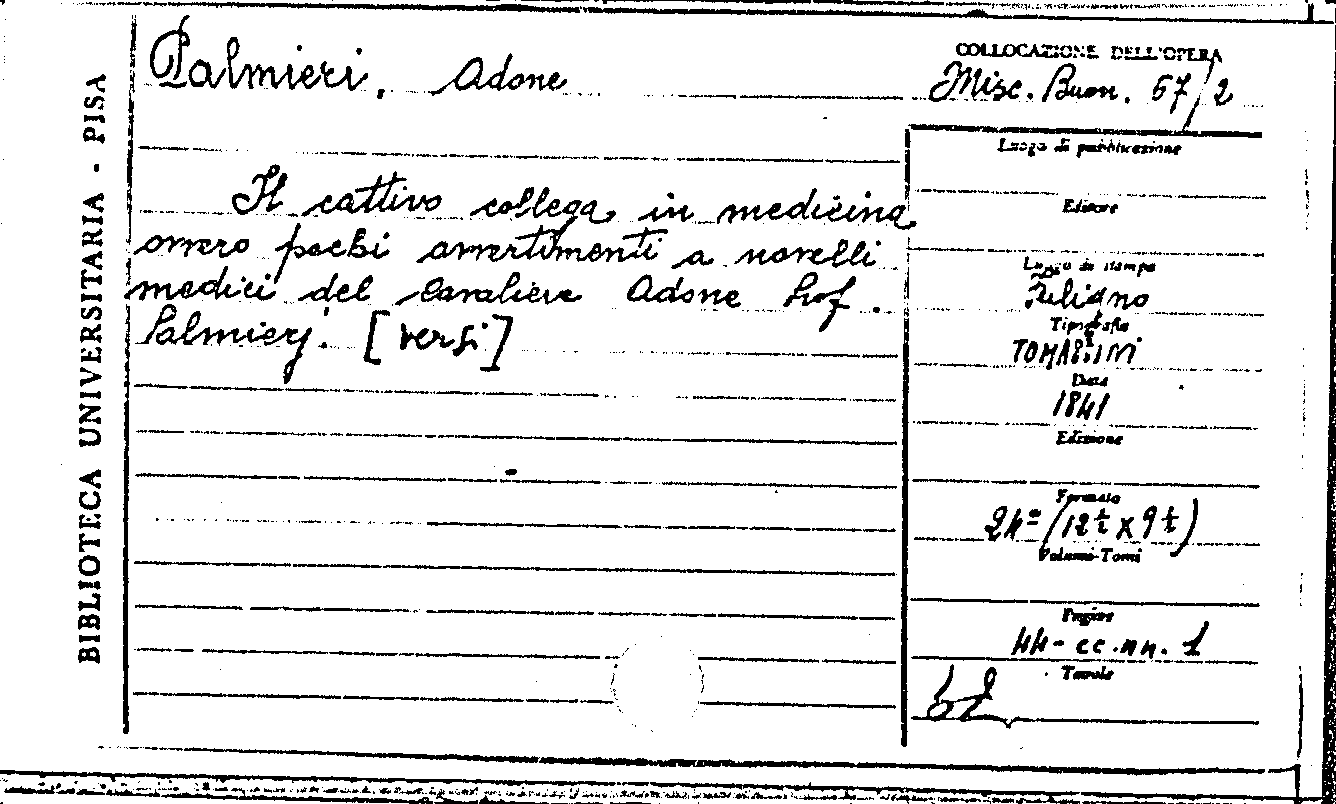 BIBLIOTECA UNIVERSITARIA - PISA
Palmieri, Adone
Il cattivo collega in medicina
ovvero pochi avvertimenti a novelli
medici del Cavaliere Adone Prof.
Palmierj. [versi]
COLLOCAZIONE DELL'OPERA
Misc. Buon. 67/2
Luogo di pubblicazione
Editore
Luogo di stampa
Foligno
Tipografia
TOMASSINI
Data
1841
Edizione
Formato
24° (12½ x 9½)
Volumi-Tomi
Pagine
44 - cc. nn. 1
Tavole